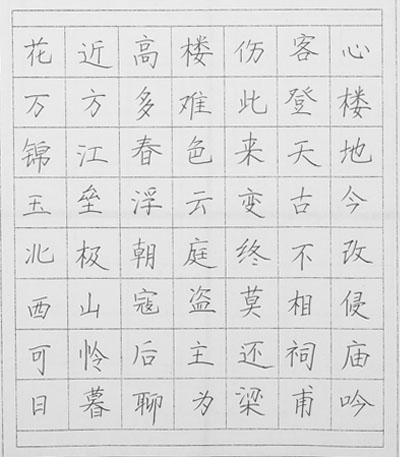 花近高楼伤客心
万方多难此登楼
锦江春色来天地
玉垒浮云变古今
北极朝庭终不改
西山寇盗莫相侵
可怜后主还祠庙
日暮聊为梁甫吟